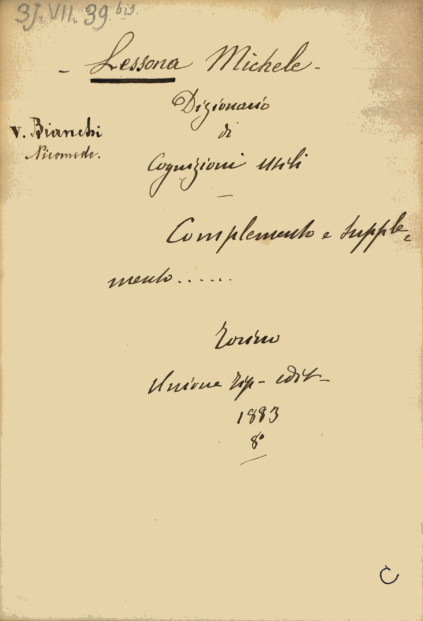 35. VII. 39. bis.
- Lessona Michele -
Dizionario
di
V. Bianchi
Nicomede.
Cognizioni utili
—
Complemento e supple-
mento......
Torino
Unione Tip- edit-
1883
8°
C